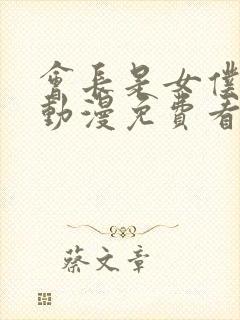 會長是女僕
動漫免費看
蔡文章